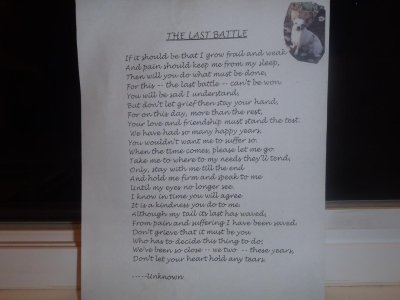 THE LAST BATTLE
If it should be that I grow frail and weak
And pain should keep me from my sleep,
Then will you do what must be done,
For this -- the last battle -- can't be won.
You will be sad I understand,
But don't let grief then stay your hand,
For on this day, more than the rest,
Your love and friendship must stand the test.
We have had so many happy years,
You wouldn't want me to suffer so.
When the time comes, please let me go.
Take me to where to my needs they'll tend,
Only, stay with me till the end
And hold me firm and speak to me
Until my eyes no longer see.
I know in time you will agree
It is a kindness you do to me.
Although my tail its last has waved,
From pain and suffering I have been saved.
Don't grieve that it must be you
Who has to decide this thing to do;
We've been so close -- we two -- these years,
Don't let your heart hold any tears.
-----Unknown